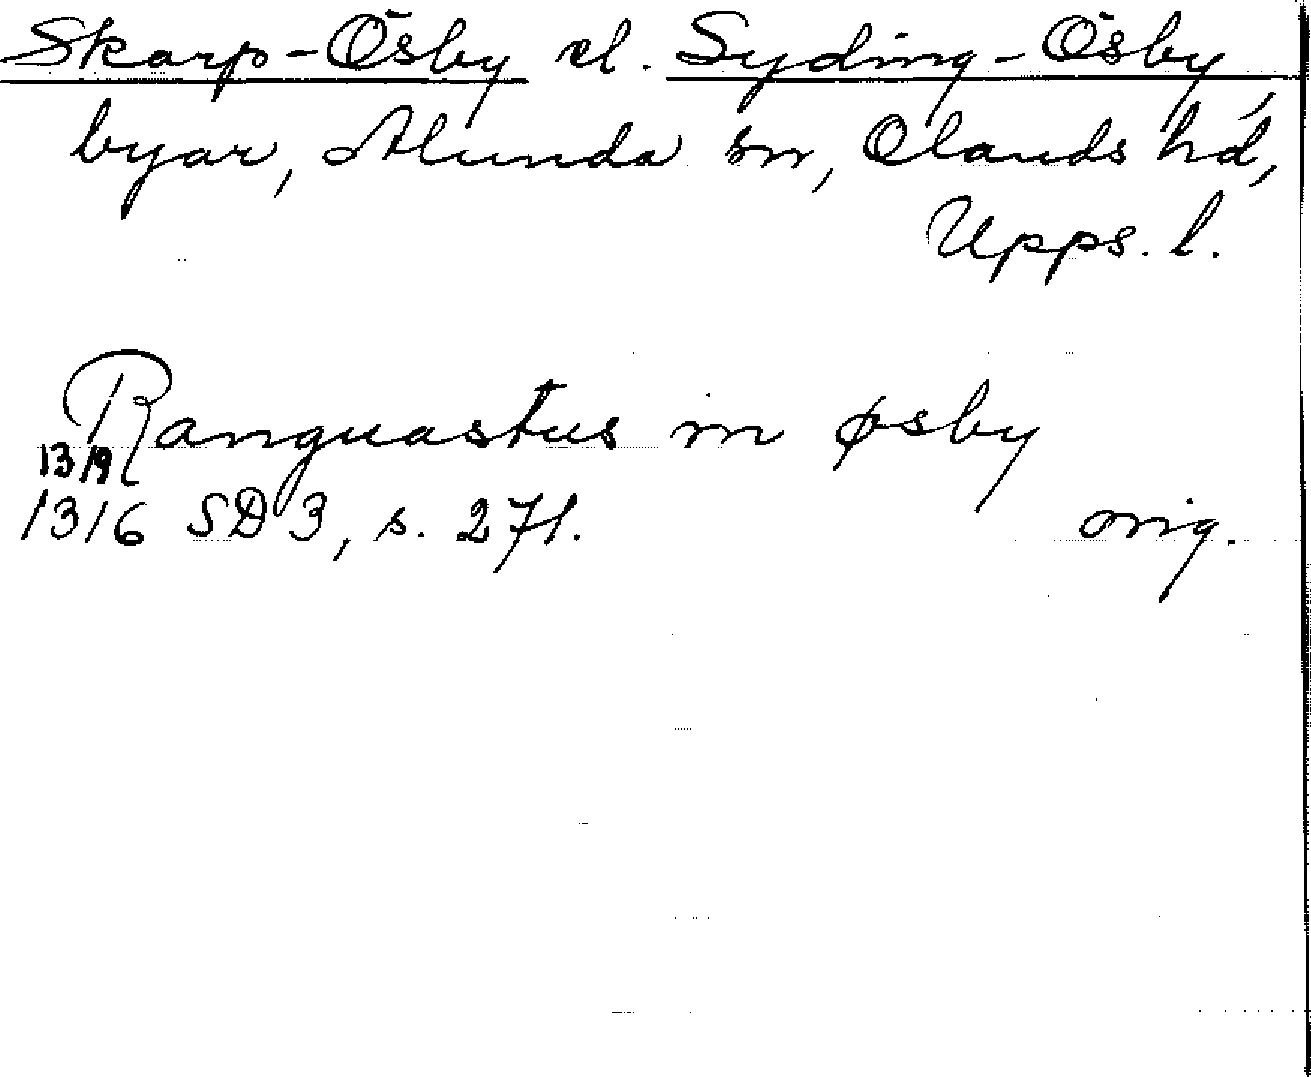 Skarp-Ösby el. Syding-Ösby,
byar, Alunda sn, Olands hd,
Upps. l.
Ranguastus in øsby
13/9
1316 SD 3, s. 271.
orig.